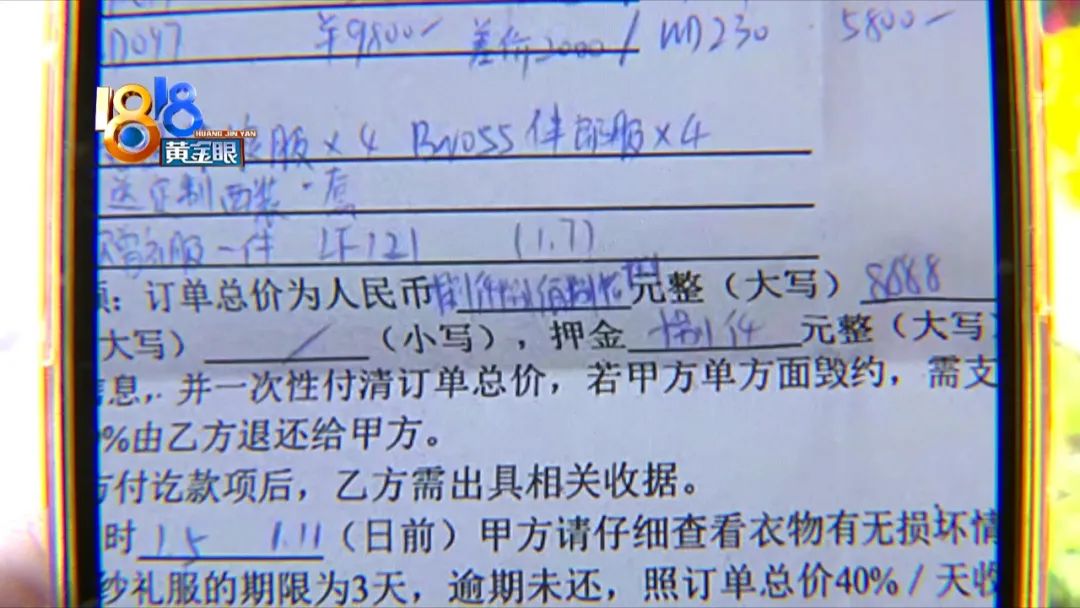 D047 ¥9800- 差价2000 / WD230 5800-
1818
HUANG JIN YAN
黄金眼
服×4 Bross 伴郎服×4
送定制西装一套
礼服一件 LF121 (1.7)
订单总价为人民币 元整(大写) 8688
大写) / (小写),押金 元整(大写
息,并一次性付清订单总价,若甲方单方面毁约,需支
%由乙方退还给甲方。
付讫款项后,乙方需出具相关收据。
时 1.5 1.11 (日前)甲方请仔细查看衣物有无损坏情
纱礼服的期限为3天,逾期未还,照订单总价40%/天收